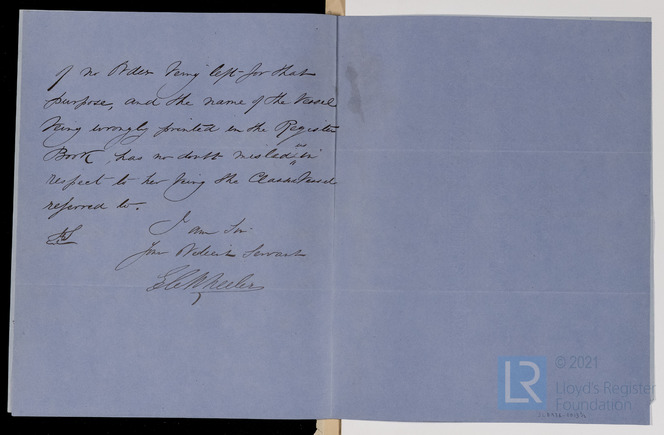 of no Order being left for that
purpose, and the name of the Vessel
being wrongly printed in the Register
Book, has no doubt mislead in
respect to her being the Classed Vessel
referred to.
I am Sir
Your Obedient Servant
Wheeler
LR
© 2021
Lloyd's Register
Foundation